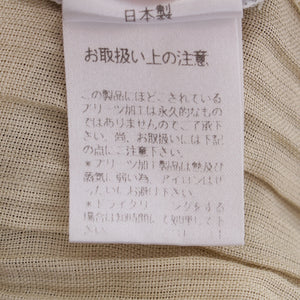 日本製
お取扱い上の注意
この製品にほどこされている
プリーツ加工は永久的なもの
ではありませんのでご了承下
さい。尚、お取扱いには下記
の点にご注意下さい。
*プリーツ加工製品は熱及び
蒸気に弱い為、アイロンはぜ
ったいにお避け下さい。
*ドライクリーニングをする
場合は短時間にて処理して下
さい。